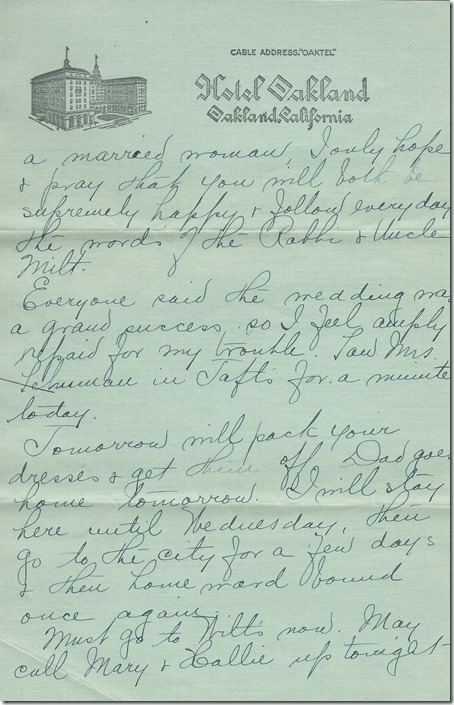 CABLE ADDRESS."OAKTEL"
Hotel Oakland
Oakland, California
a married woman. I only hope
& pray that you will both be
supremely happy & follow every day
the words of the Rabbi & Uncle
Milt.
Everyone said the wedding was
a grand success, so I feel amply
repaid for my trouble. Saw Mrs.
in Taft's for a minute
today.
Tomorrow will pack your
dresses & get them off. Dad goes
home tomorrow. I will stay
here until Wednesday, then
go to the city for a few days
& then home ward bound
once again.
Must go to Milt's now. May
call Mary & Hallie up tonight